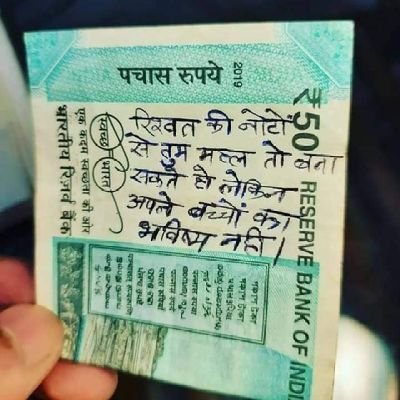 पचास रुपये
2019
रिश्वत की नोटों
से तुम महल तो बना
सकते हो लेकिन
अपने बच्चों का
भविष्य नहीं।
₹50 RESERVE BANK OF INDI
स्वच्छ भारत
एक कदम स्वच्छता की ओर
भारतीय रिज़र्व बैंक